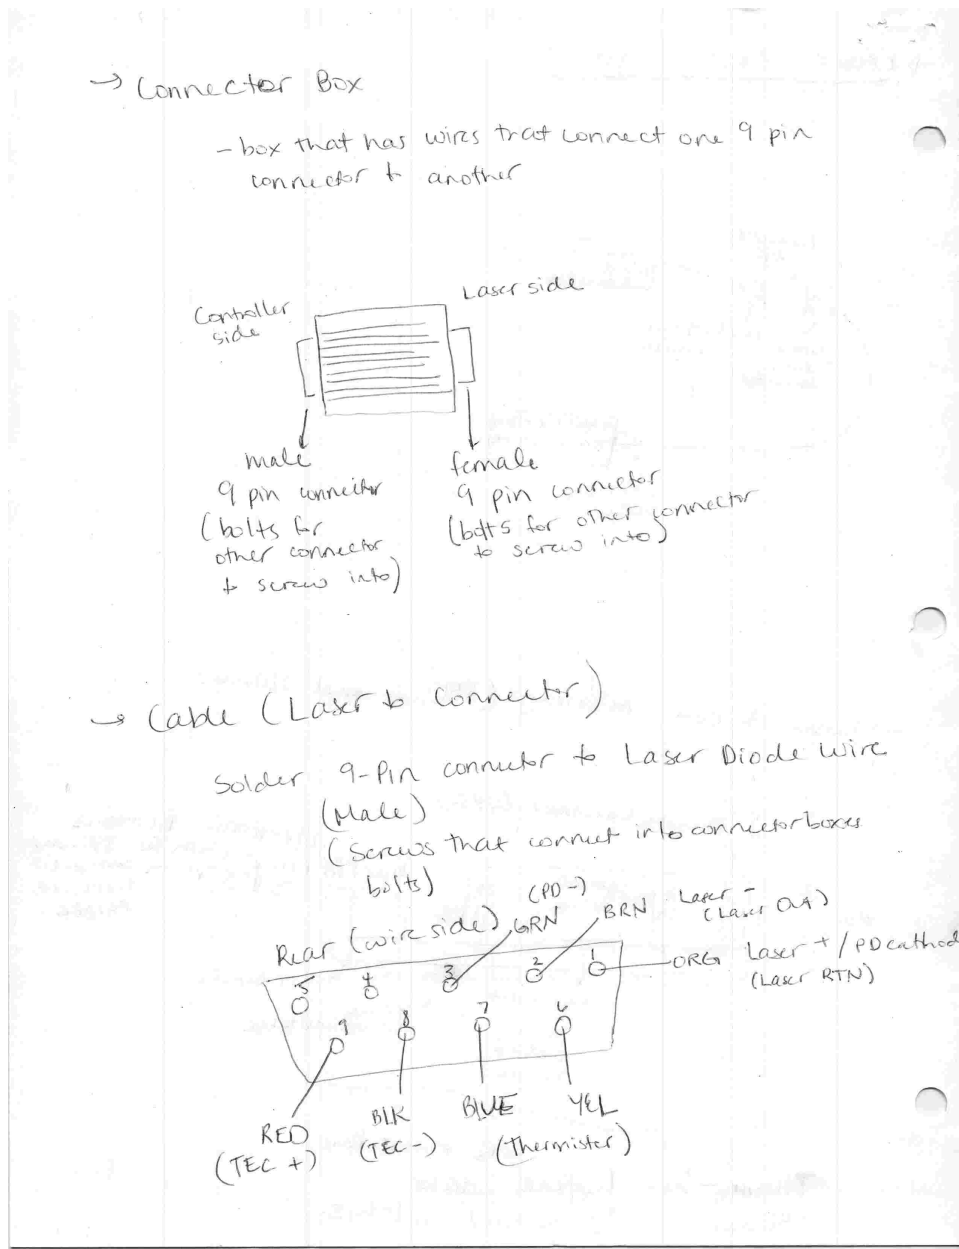 → Connector Box
- box that has wires that connect one 9 pin
connector to another
Controller
side
Laser side
male
9 pin connector
(bolts for
other connector
to screw into)
female
9 pin connector
(bolts for other connector
to screw into)
→ Cable (Laser to Connector)
Solder 9-Pin connector to Laser Diode Wire
(Male)
(Screws that connect into connector boxes
bolts)
Rear (wire side)
(PD-)
GRN
BRN
Laser -
(Laser Out)
ORG
Laser + / PD cathod
(Laser RTN)
5 4 3 2 1
9 8 7 6
RED
(TEC +)
BLK
(TEC -)
BLUE
YEL
(Thermister)